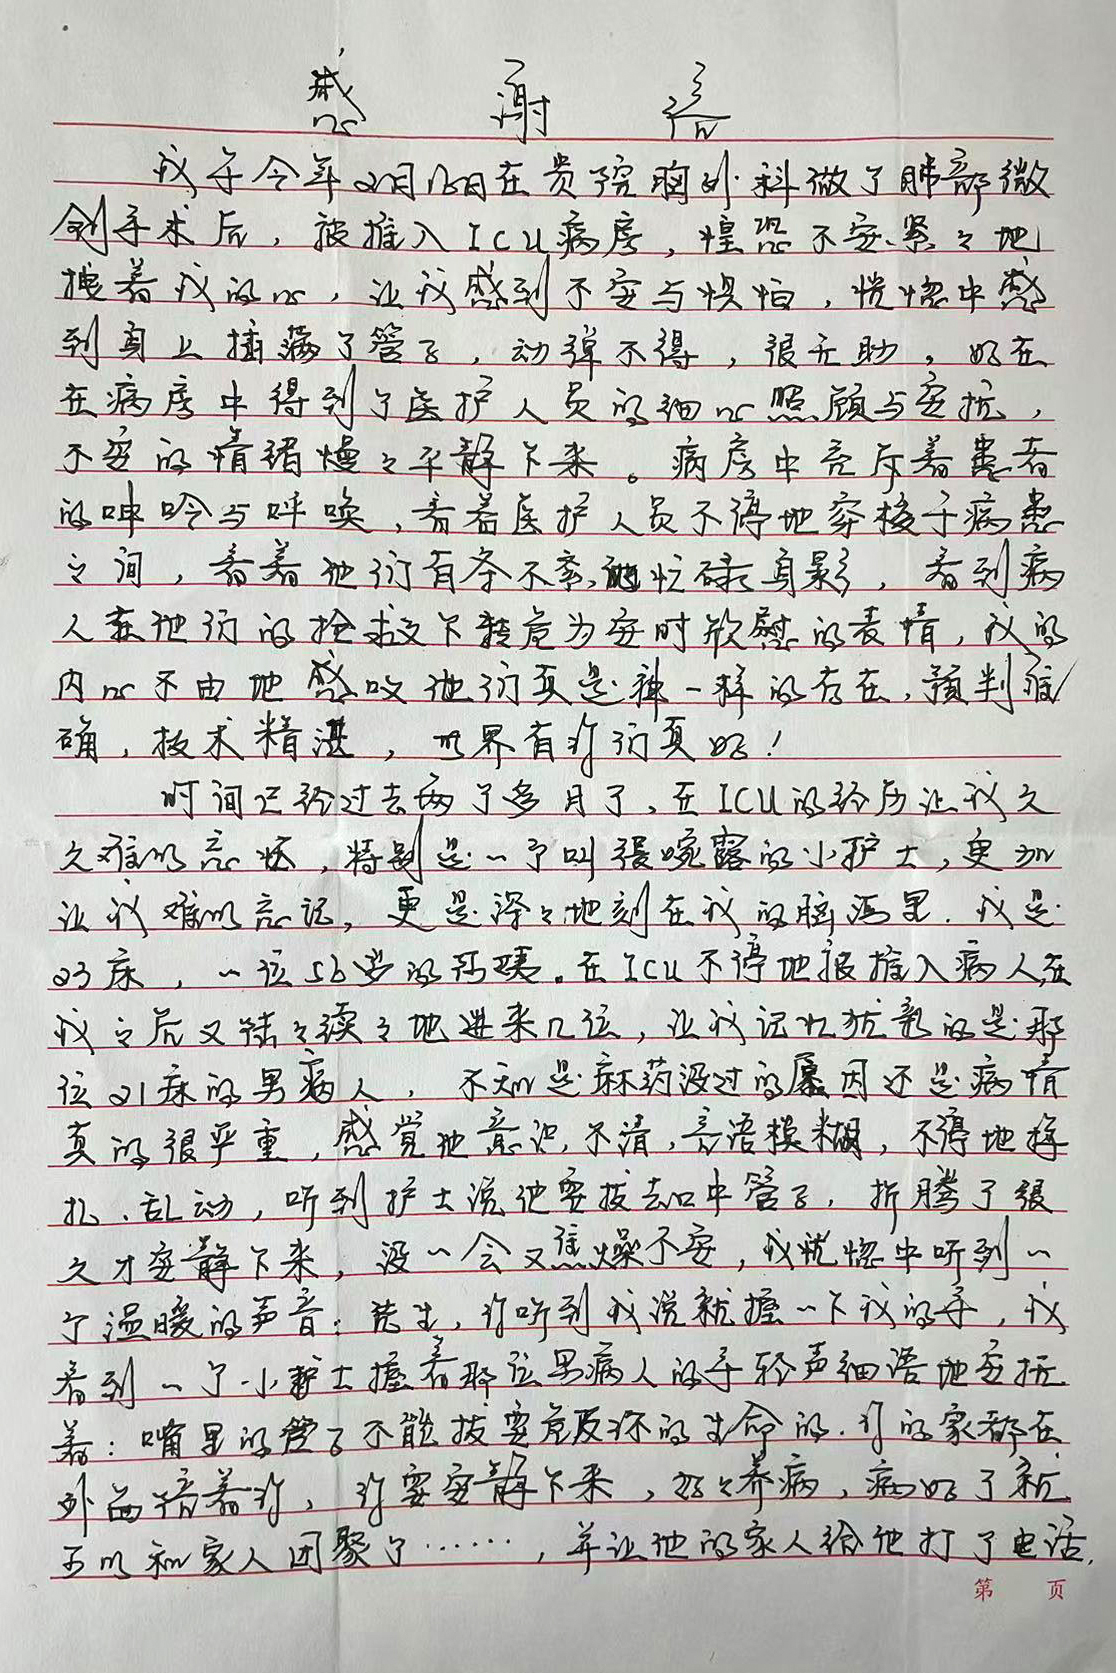 感谢信
我于今年2月12日在贵院胸外科做了肺部微
创手术后，被推入ICU病房，惶恐不安紧々地
拽着我的心，让我感到不安与惧怕，恍惚中感
到身上插满了管子，动弹不得，很无助。好在
在病房中得到了医护人员的细心照顾与安抚，
不安的情绪慢々平静下来。病房中充斥着患者
的呻吟与呼唤，看着医护人员不停地穿梭于病患
之间，看着他们有条不紊，忙碌身影，看到病
人在他们的抢救下转危为安时欣慰的表情，我的
内心不由地感叹他们真是神一样的存在，预判准
确，技术精湛，世界有你们真好！
时间已经过去两个多月了，在ICU的经历让我久
久难以忘怀，特别是一个叫张婉露的小护士，更加
让我难以忘记，更是深々地刻在我的脑海里。我是
23床，一位56岁的阿姨。在ICU不停地被推入病人，在
我之后又陆々续々地进来几位，让我记忆犹新的是那
位21床的男病人，不知是麻药没过的原因还是病情
真的很严重，感觉他意识不清，言语模糊，不停地挣
扎、乱动，听到护士说他要拔去口中管子，折腾了很
久才安静下来，没一会又焦燥不安，我恍惚中听到一
个温暖的声音：先生，你听到我说就握一下我的手，我
看到一个小护士握着那位男病人的手轻声细语地安抚
着：嘴里的管子不能拔要危及你的生命的．你的家都在
外面陪着你，你要安静下来，好々养病，病好了就
可以和家人团聚了……，并让他的家人给他打了电话，
第 页